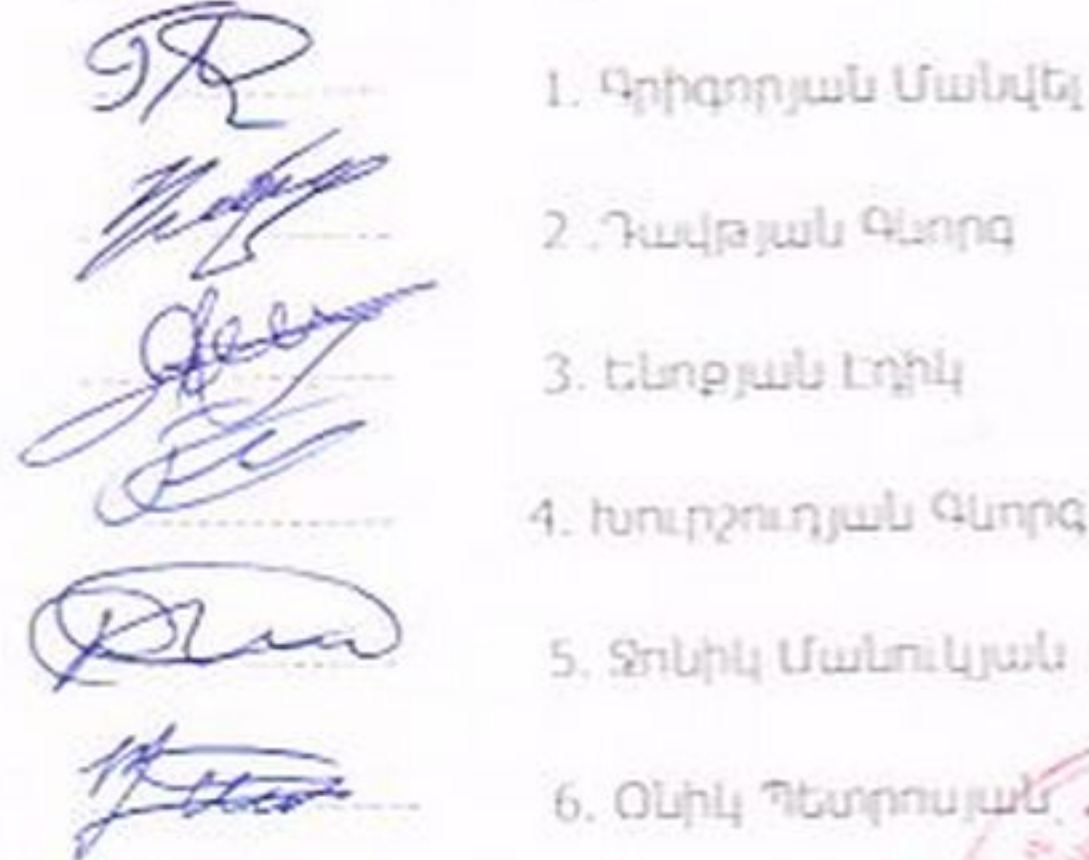 1. Գրիգորյան Մանվել
2 .Դավթյան Գևորգ
3. Ենոքյան Էդիկ
4. Խուրշուդյան Գևորգ
5. Ջոնիկ Մանուկյան
6. Օնիկ Պետրոսյան